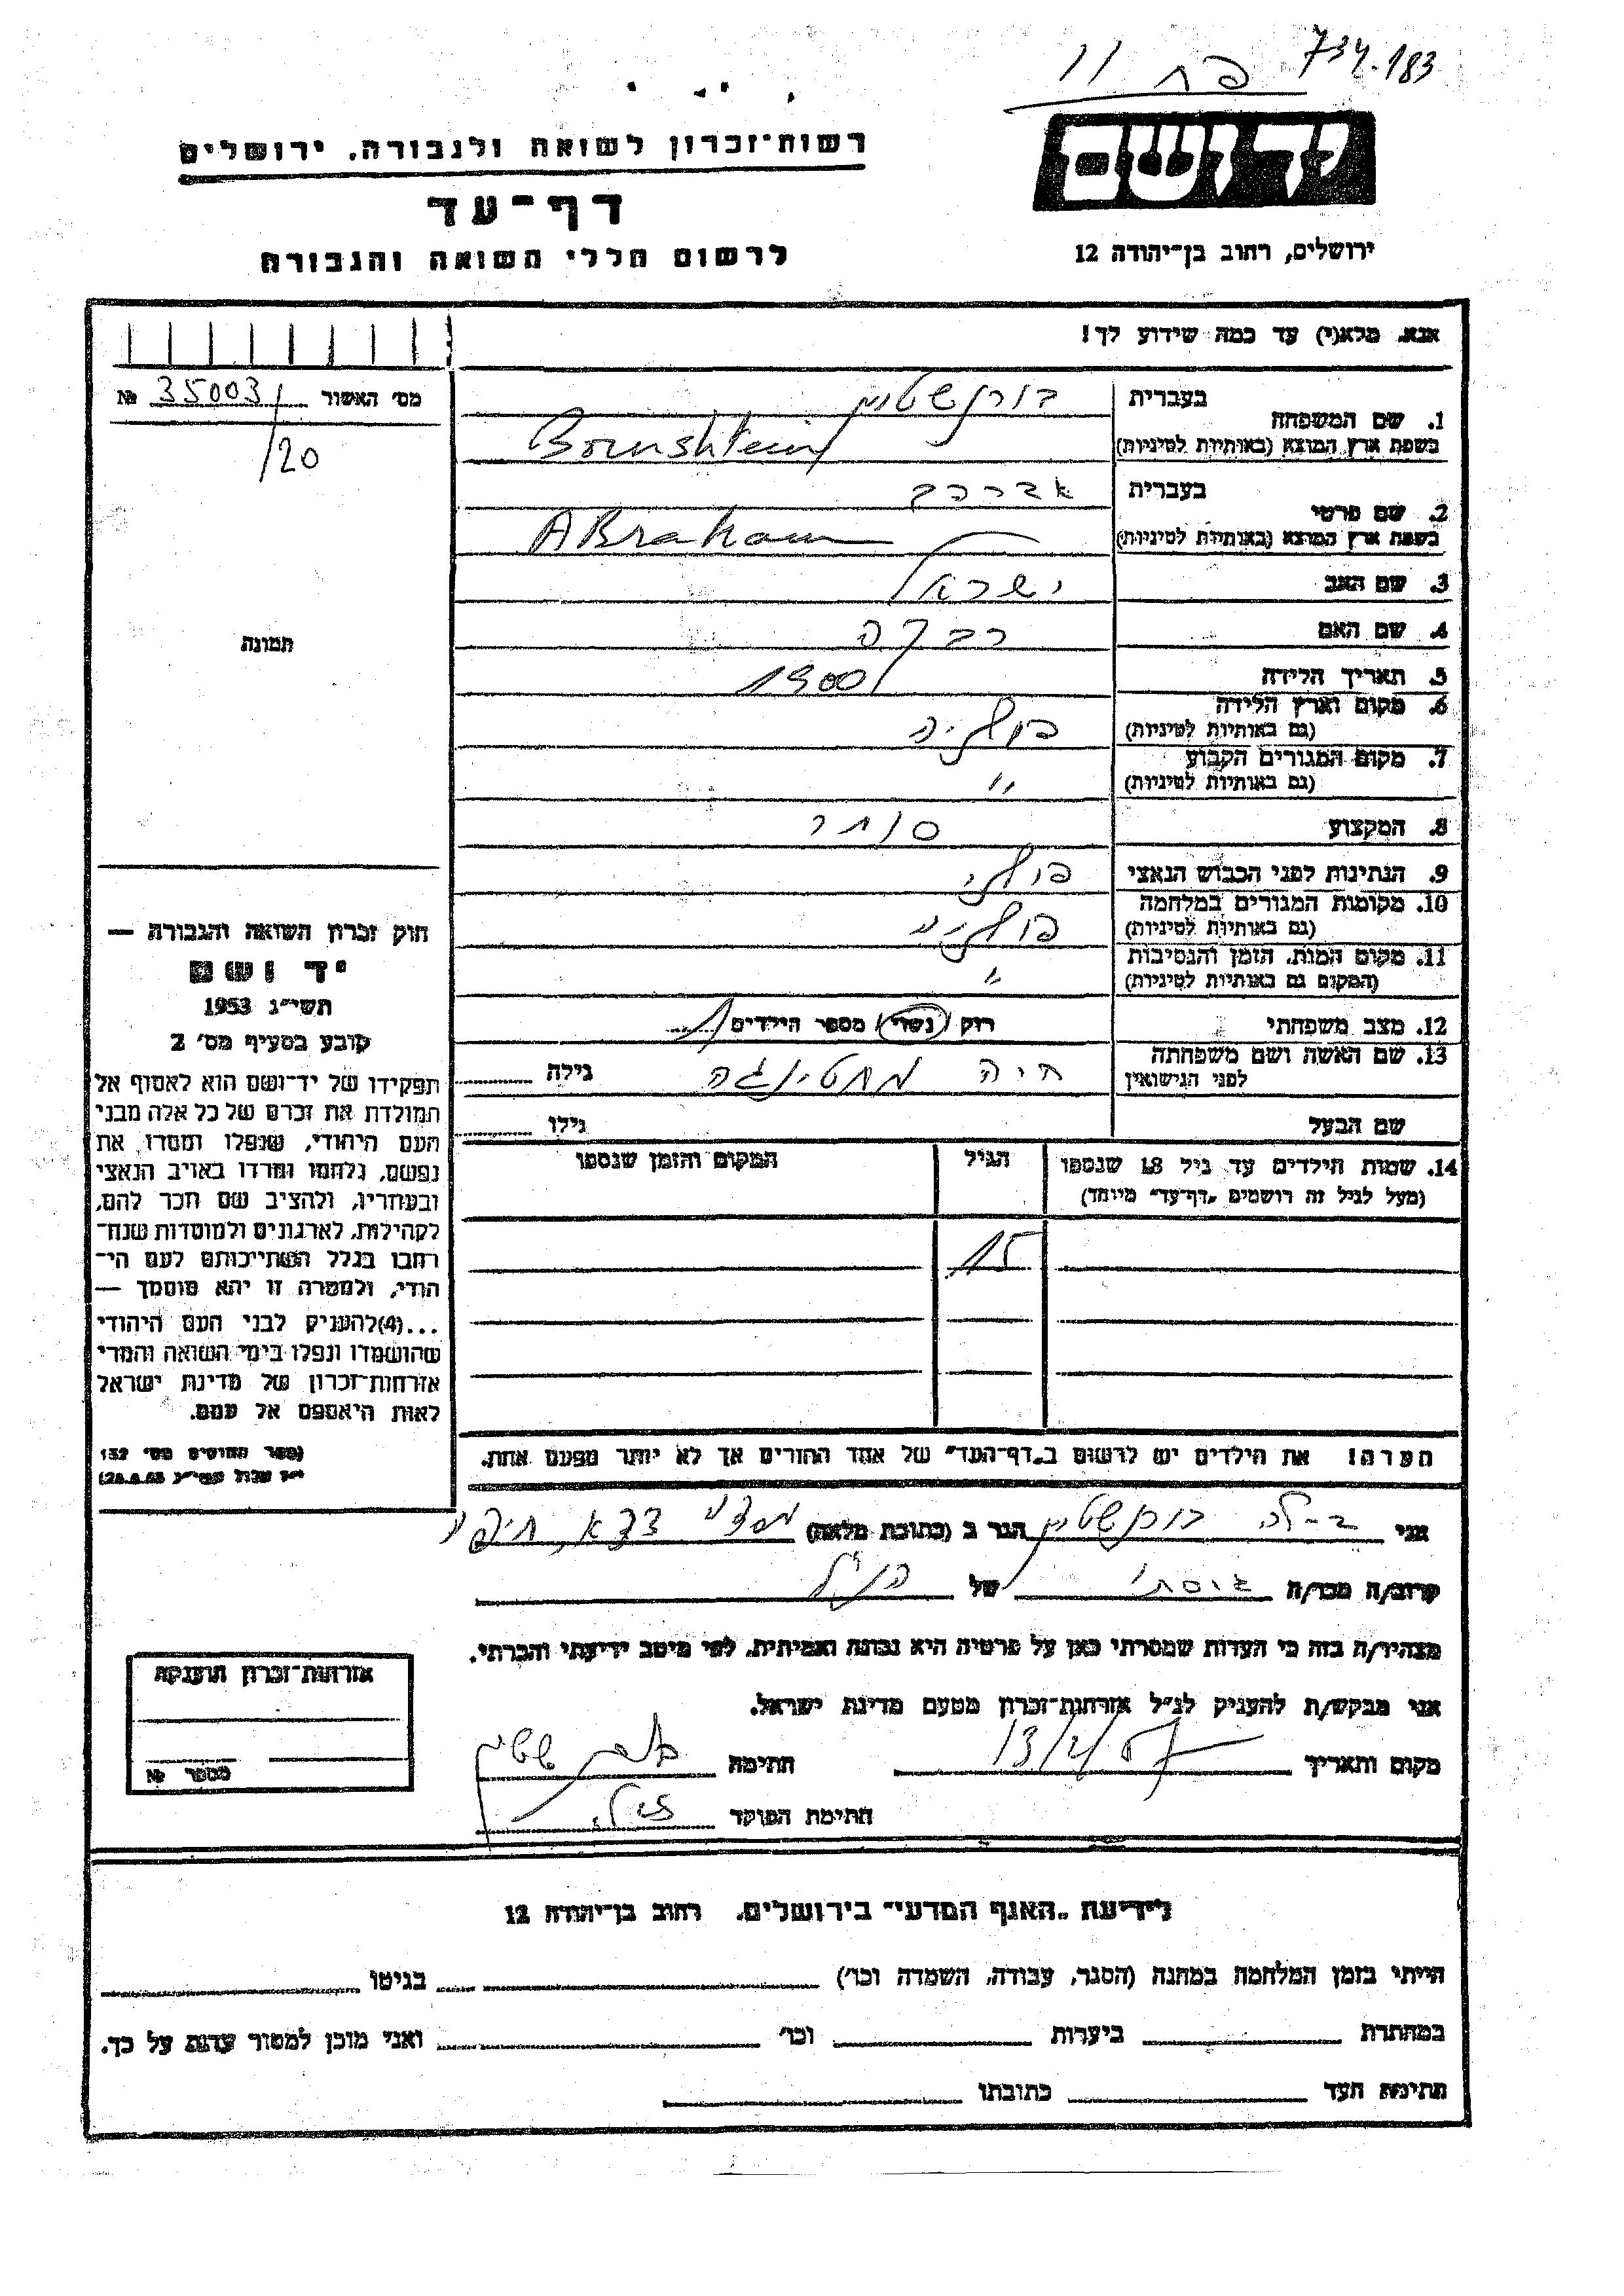 734.183
פח 11
יד ושם
רשות־זכרון לשואה ולגבורה. ירושלים
דף־עד
לרשום חללי השואה והגבורה
ירושלים, רחוב בן־יהודה 12
אנא, מלא(י) עד כמה שידוע לך!
מס׳ האשור 35003 №
/20
1. שם המשפחה
בעברית בורנשטיין
בשפת ארץ המוצא (באותיות לטיניות) Bornshtein
2. שם פרטי
בעברית אברהם
בשפת ארץ המוצא (באותיות לטיניות) ABraham
3. שם האב ישראל
4. שם האם רבקה
5. תאריך הלידה 1900
6. מקום וארץ הלידה פולניה
(גם באותיות לטיניות)
7. מקום המגורים הקבוע "
(גם באותיות לטיניות)
8. המקצוע סוחר
9. הנתינות לפני הכבוש הנאצי פולני
10. מקומות המגורים במלחמה פולניי
(גם באותיות לטיניות)
11. מקום המות, הזמן והנסיבות "
(המקום גם באותיות לטיניות)
12. מצב משפחתי רוק (נשוי) מספר הילדים 1
13. שם האשה ושם משפחתה חיה גילה
לפני הנישואין
שם הבעל גילו
14. שמות הילדים עד גיל 18 שנספו הגיל המקום והזמן שנספו
(מעל לגיל זה רושמים „דף־עד״ מיוחד)
15
הערה! את הילדים יש לרשום ב„דף־העד״ של אחד ההורים אך לא יותר מפעם אחת.
תמונה
חוק זכרון השואה והגבורה —
יד ושם
תשי״ג 1953
קובע בסעיף מס׳ 2
תפקידו של יד־ושם הוא לאסוף אל
המולדת את זכרם של כל אלה מבני
העם היהודי, שנפלו ומסרו את
נפשם, נלחמו ומרדו באויב הנאצי
ובעוזריו, ולהציב שם וזכר להם,
לקהילות, לארגונים ולמוסדות שנח־
רחבו בגלל השתייכותם לעם הי־
הודי, ולמטרה זו יהא מוסמך —
...(4)להעניק לבני העם היהודי
שהושמדו ונפלו בימי השואה והמרי
אזרחות־זכרון של מדינת ישראל
לאות היאספם אל עמם.
(ספר החוקים מס׳ 132
אני בורנשטיין הגר ב (כתובת מלאה) חיפה
קרוב/ה מכר/ה גיסתו של הנ״ל
מצהיר/ה בזה כי העדות שמסרתי כאן על פרטיה היא נכונה ואמיתית, לפי מיטב ידיעתי והכרתי.
אני מבקש/ת להעניק לנ״ל אזרחות־זכרון מטעם מדינת ישראל.
מקום ותאריך 13/2/57 חתימה
חתימת הפוקד
אזרחות־זכרון הוענקה
מספר №
לידיעת „האגף המדעי״ בירושלים, רחוב בן־יהודה 12
הייתי בזמן המלחמה במחנה (הסגר, עבודה, השמדה וכו׳) בגיטו
במחתרת ביערות וכו׳ ואני מוכן למסור עדות על כך.
חתימת העד כתובתו